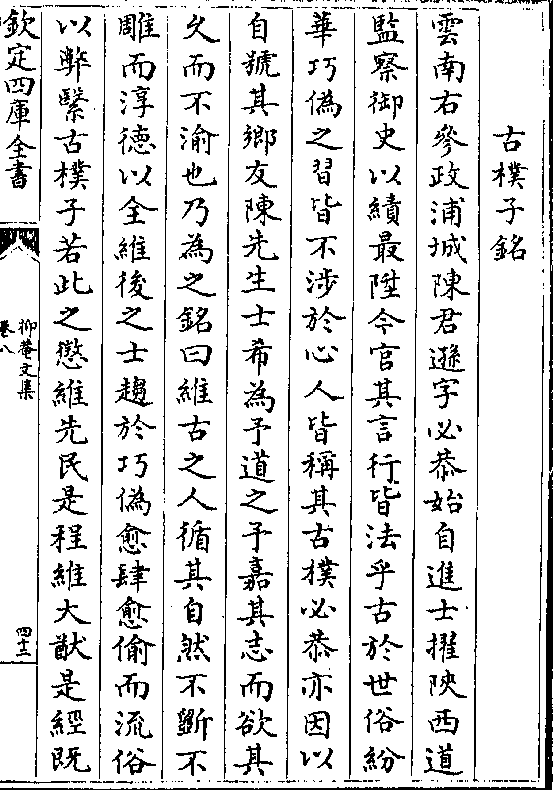 古樸子銘
雲南右參政浦城陳君遜字必恭始自進士擢陜西道
監察御史以績最陞今官其言行皆法乎古於世俗紛
華巧偽之習皆不涉於心人皆稱其古樸必恭亦因以
自號其鄉友陳先生士希為予道之予嘉其志而欲其
久而不渝也乃為之銘曰維古之人循其自然不斵不
雕而淳德以全維後之士趨於巧偽愈肆愈偷而流俗
以弊繄古樸子若此之懲維先民是程維大猷是經既
欽定四庫全書
抑菴文集
卷八
四十二